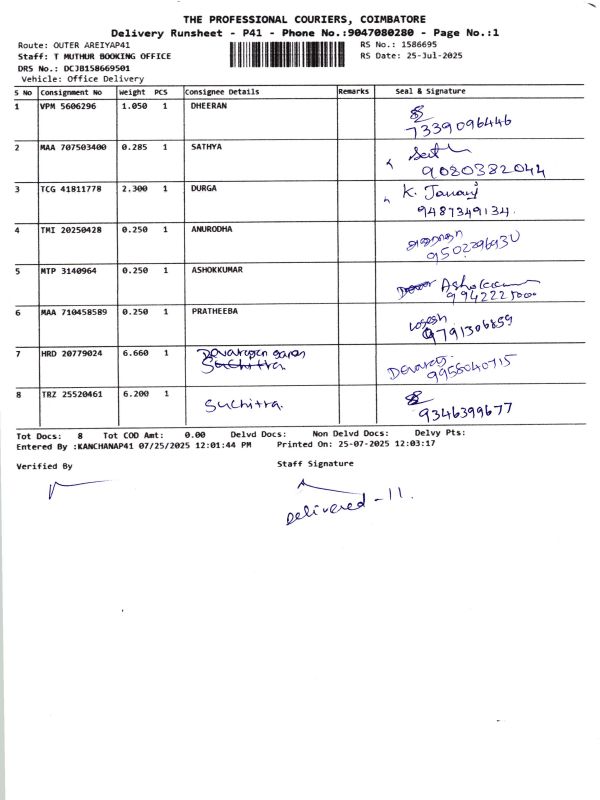 THE PROFESSIONAL COURIERS, COIMBATORE
Delivery Runsheet - P41 - Phone No.:9047080280 - Page No.:1
Route: OUTER AREIYAP41 RS No.: 1586695
Staff: T MUTHUR BOOKING OFFICE RS Date: 25-Jul-2025
DRS No.: DCJB158669501
Vehicle: Office Delivery
S No Consignment No Weight PCS Consignee Details Remarks Seal & Signature
1 VPM 5606296 1.050 1 DHEERAN
7339096446
2 MAA 707503400 0.285 1 SATHYA
9080382044
3 TCG 41811778 2.300 1 DURGA K. Janani
9487349134.
4 TMI 20250428 0.250 1 ANURODHA
5 MTP 3140964 0.250 1 ASHOKKUMAR Ashokkumar
6 MAA 710458589 0.250 1 PRATHEEBA
9791306859
7 HRD 20779024 6.660 1
Suchitra. Devaraj.
9958040715
8 TRZ 25520461 6.200 1 Suchitra.
9346399677
Tot Docs: 8 Tot COD Amt: 0.00 Delvd Docs: Non Delvd Docs: Delvy Pts:
Entered By :KANCHANAP41 07/25/2025 12:01:44 PM Printed On: 25-07-2025 12:03:17
Verified By Staff Signature
Delivered - 11.